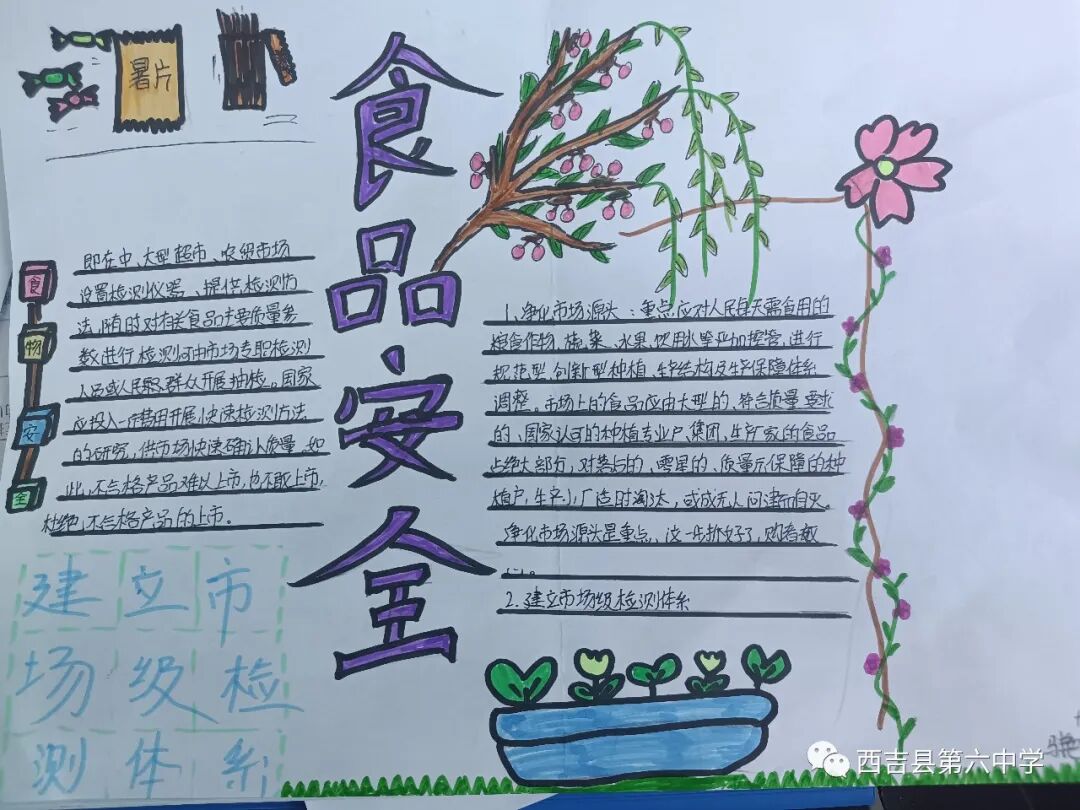 暑片
食品安全
食
物
安
全
即在中、大型超市、农贸市场
设置检测仪器、提供检测方
法,随时对有关食品主要质量参
数进行检测,可由市场专职检测
人员或人民群众开展抽检。国家
应投入一定费用开展快速检测方法
的研究,供市场快速确认质量,如
此,不合格产品难以上市,也不敢上市,
杜绝,不合格产品的上市。
建立市
场级检
测体系
1、净化市场源头:重点应对人民每天需食用的
粮食作物、蔬菜、水果、饮用水等严加控管,进行
规范型、创新型种植、生产结构及生产保障体系
调整。市场上的食品应由大型的、符合质量要求
的、国家认可的种植专业户、集团、生产厂家的食品
占绝大部分,对落后的、零星的、质量无保障的种
植户、生产小厂适时淘汰,或成无人问津而自灭。
净化市场源头是重点,这一步抓好了,购者
2.建立市场级检测体系
西吉县第六中学